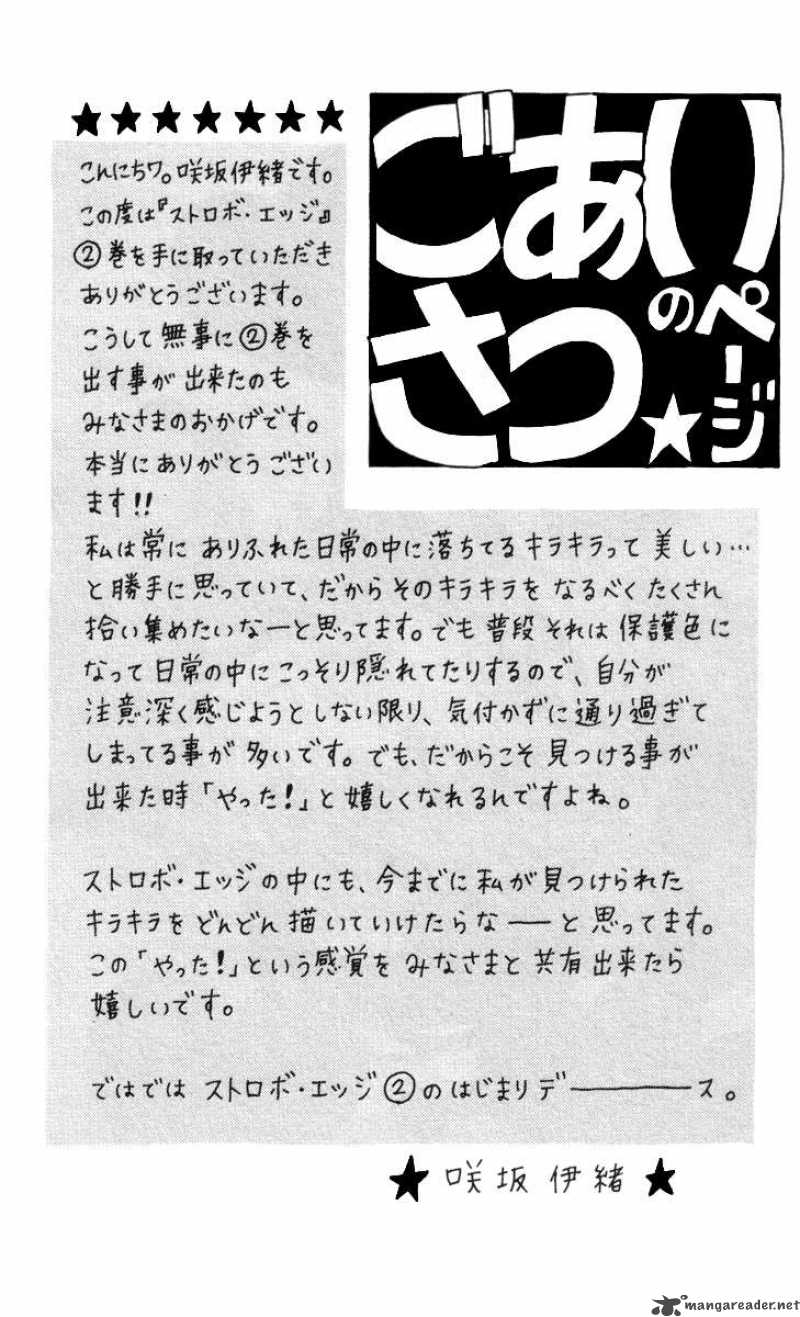 ごあい
さつ
のページ
こんにちワ。咲坂伊緒です。
この度は『ストロボ・エッジ』
②巻を手に取っていただき
ありがとうございます。
こうして無事に②巻を
出す事が出来たのも
みなさまのおかげです。
本当にありがとうござい
ます!!
私は常にありふれた日常の中に落ちてるキラキラって美しい…
と勝手に思っていて、だからそのキラキラをなるべくたくさん
拾い集めたいなーと思ってます。でも普段それは保護色に
なって日常の中にこっそり隠れてたりするので、自分が
注意深く感じようとしない限り、気付かずに通り過ぎて
しまってる事が多いです。でも、だからこそ見つける事が
出来た時「やった!」と嬉しくなれるんですよね。
ストロボ・エッジの中にも、今までに私が見つけられた
キラキラをどんどん描いていけたらな──と思ってます。
この「やった!」という感覚をみなさまと共有出来たら
嬉しいです。
ではではストロボ・エッジ②のはじまりデ─────ス。
★咲坂伊緒★
mangareader.net